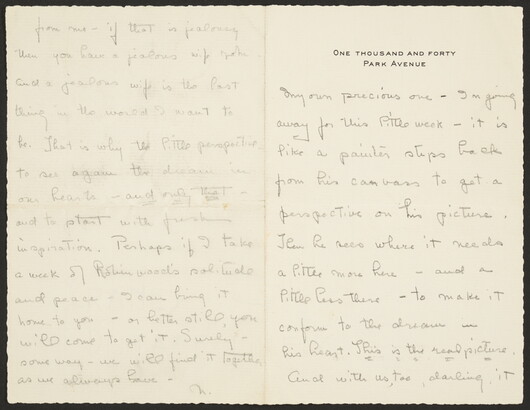 ONE THOUSAND AND FORTY
PARK AVENUE
My own precious one - I'm going
away for this little week - it is
like a painter steps back
from his canvass to get a
perspective on his picture.
Then he sees where it needs
a little more here - and a
little less there - to make it
conform to the dream in
his heart. This is the real picture.
And with us, too, darling, it
from me - if that is jealousy
then you have a jealous wife
and a jealous wife is the last
thing in the world I want to
be. That is why the little perspective
to see again the dream in
our hearts - and only that -
and to start with fresh
inspiration. Perhaps if I take
a week of solitude
and peace - I can bring it
home to you - or better still, you
will come to get it. Surely -
some way - we will find it together
as we always have -